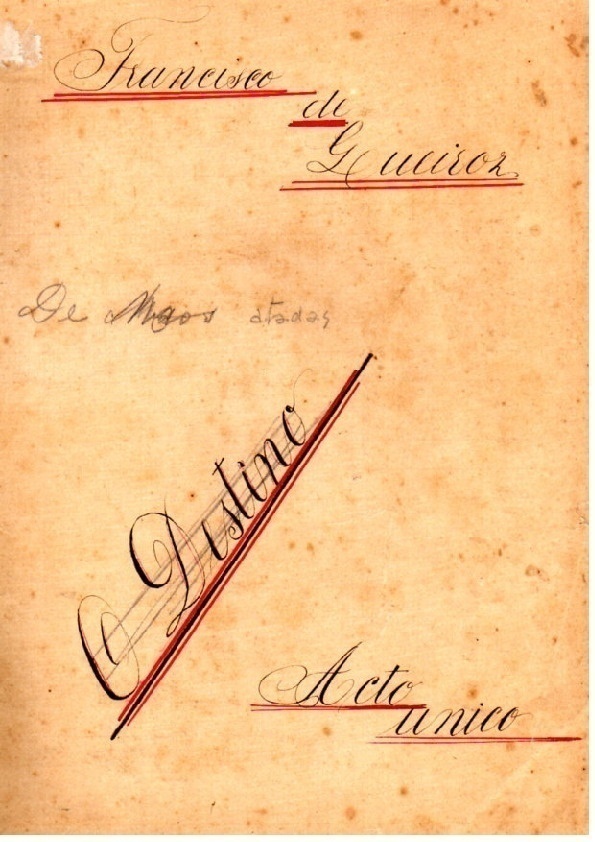 Francisco
de
Queiroz
De Mãos atadas
O Destino
Acto
unico